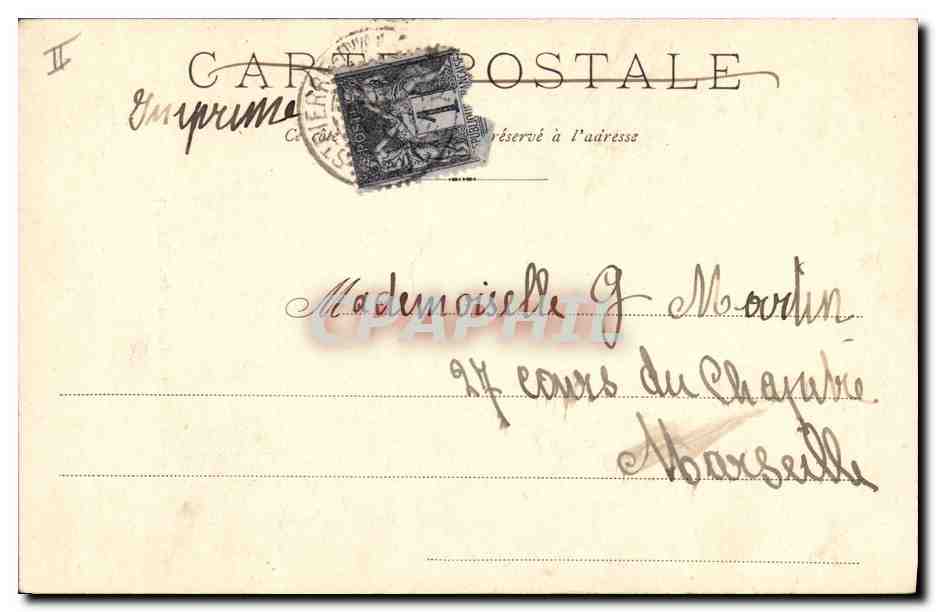 II
CARTE POSTALE
Imprimé
Ce côté réservé à l'adresse
ST PIERRE
1
Mademoiselle G Martin
CPAPHIL
27 cours du Chapitre
Marseille